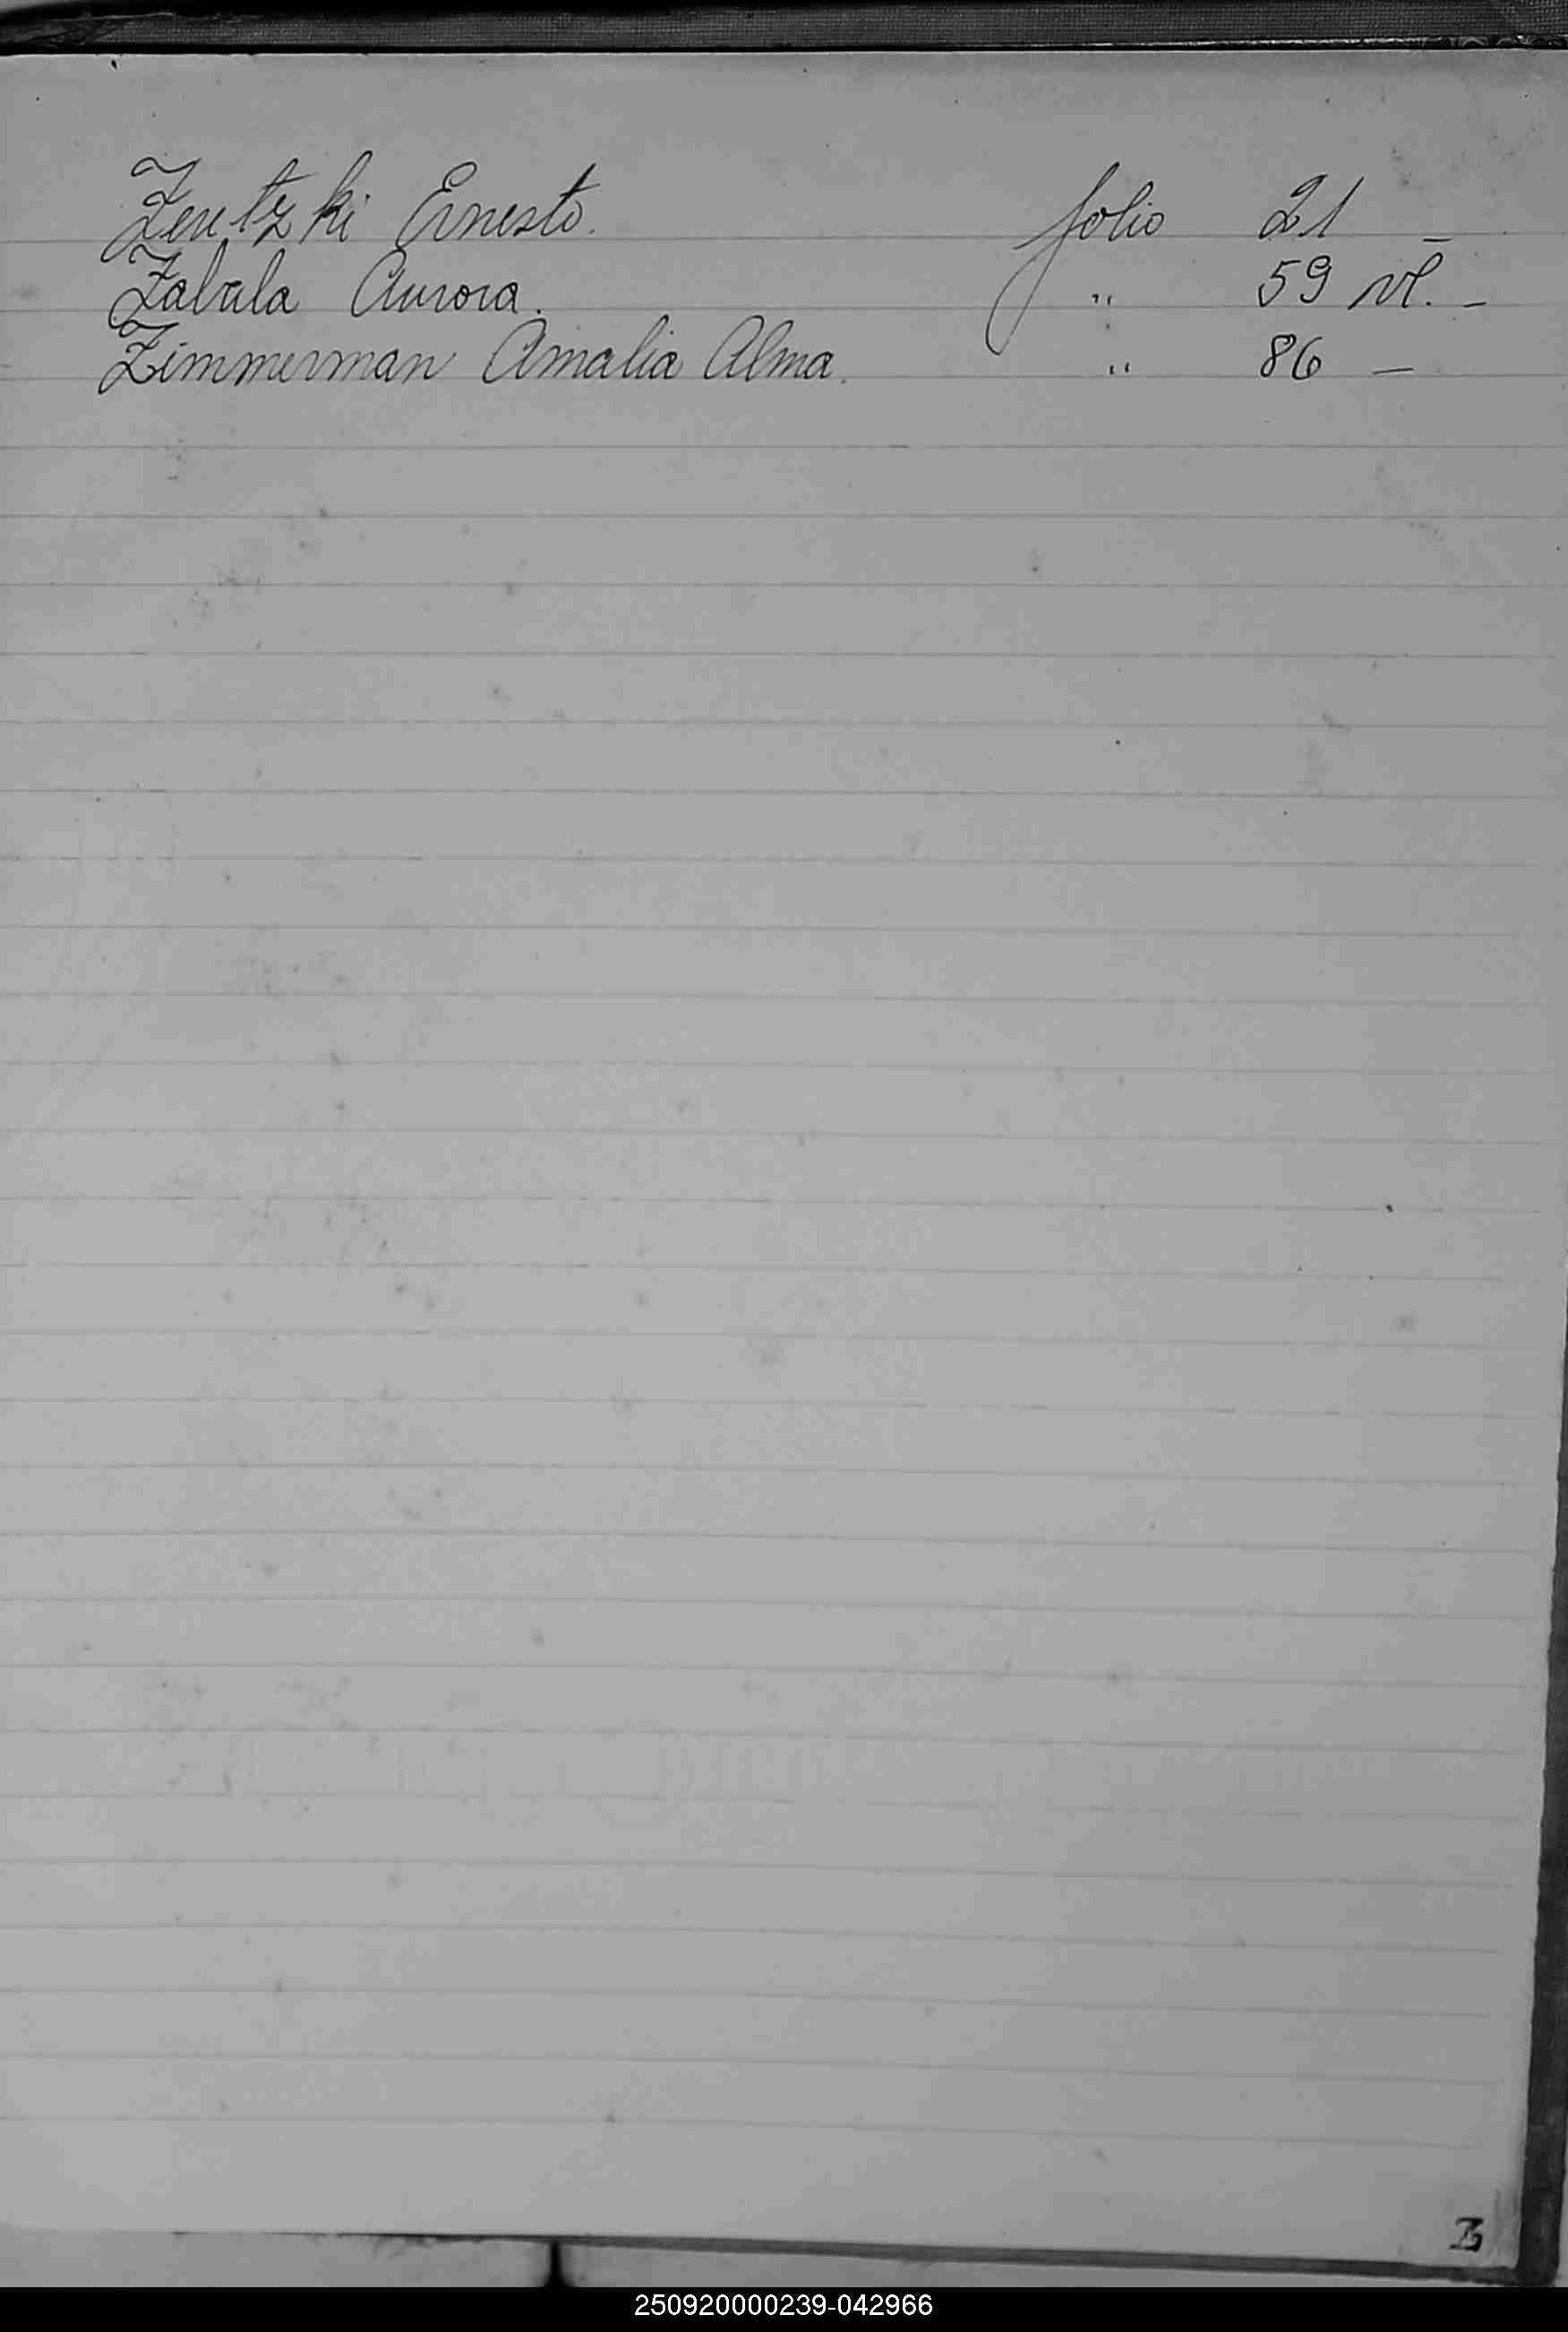 Zeutzki Ernesto. folio 21 –
Zabala Aurora. " 59 vl. –
Zimmerman Amalia Alma. " 86 –
Z
250920000239-042966